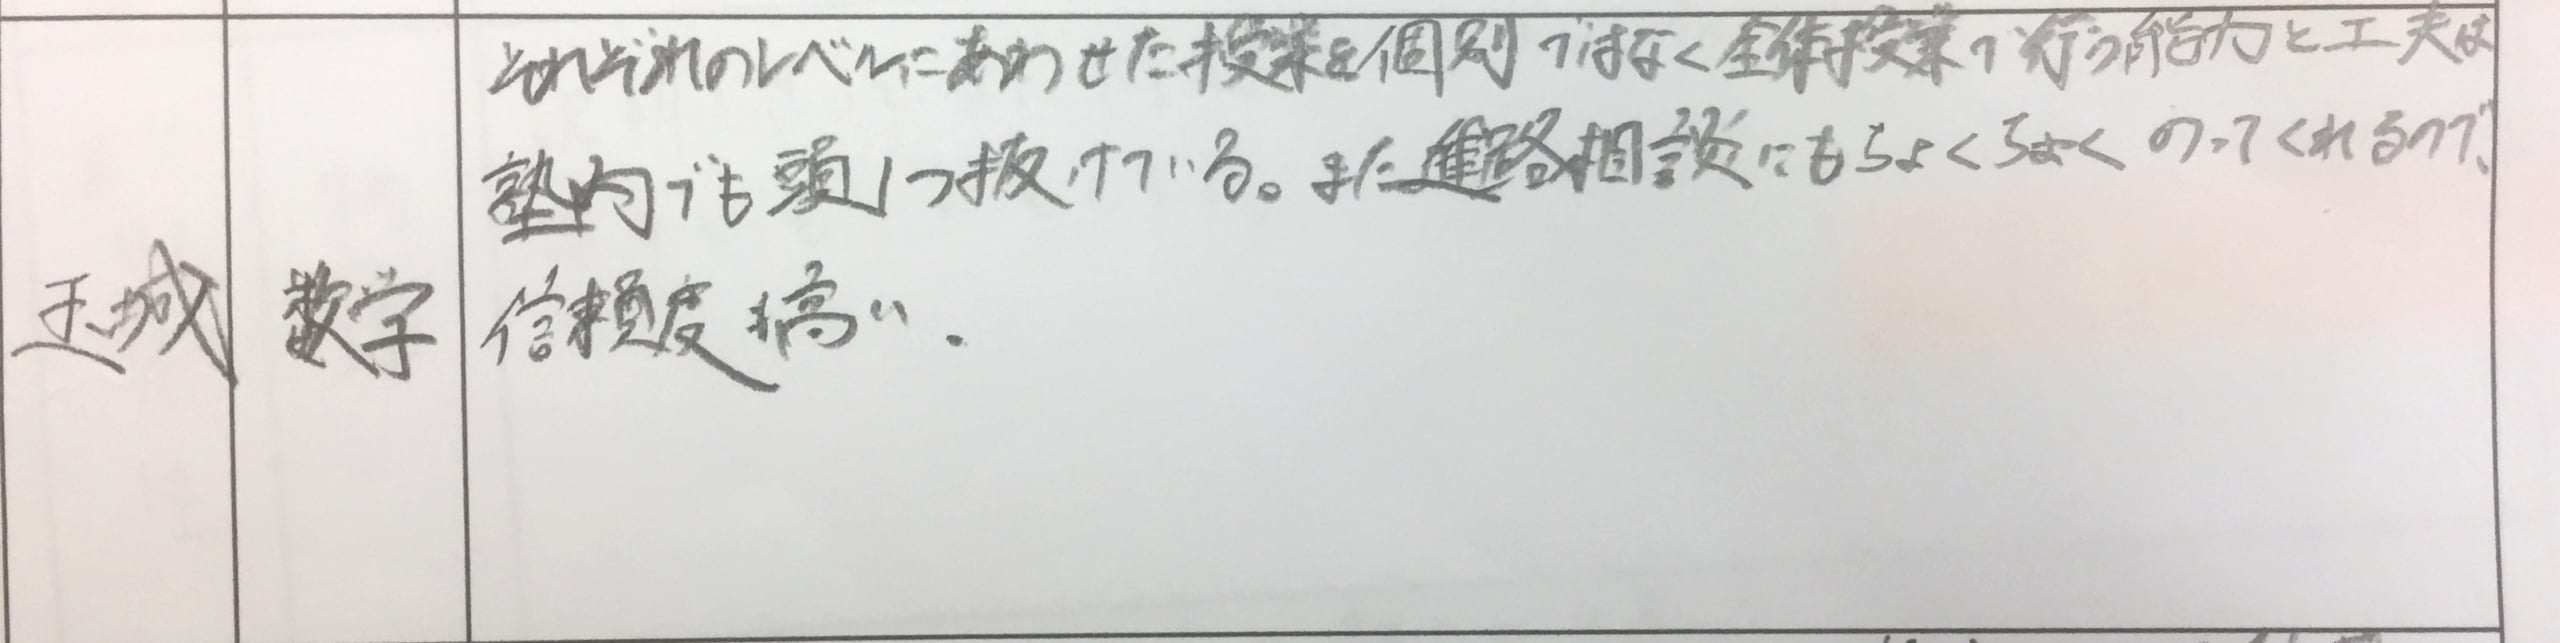 それぞれのレベルにあわせた授業を個別ではなく全体授業で行う能力と工夫は
塾内でも頭1つ抜けている。また進路相談にもちょくちょくのってくれるので、
玉城
数学
信頼度も高い.